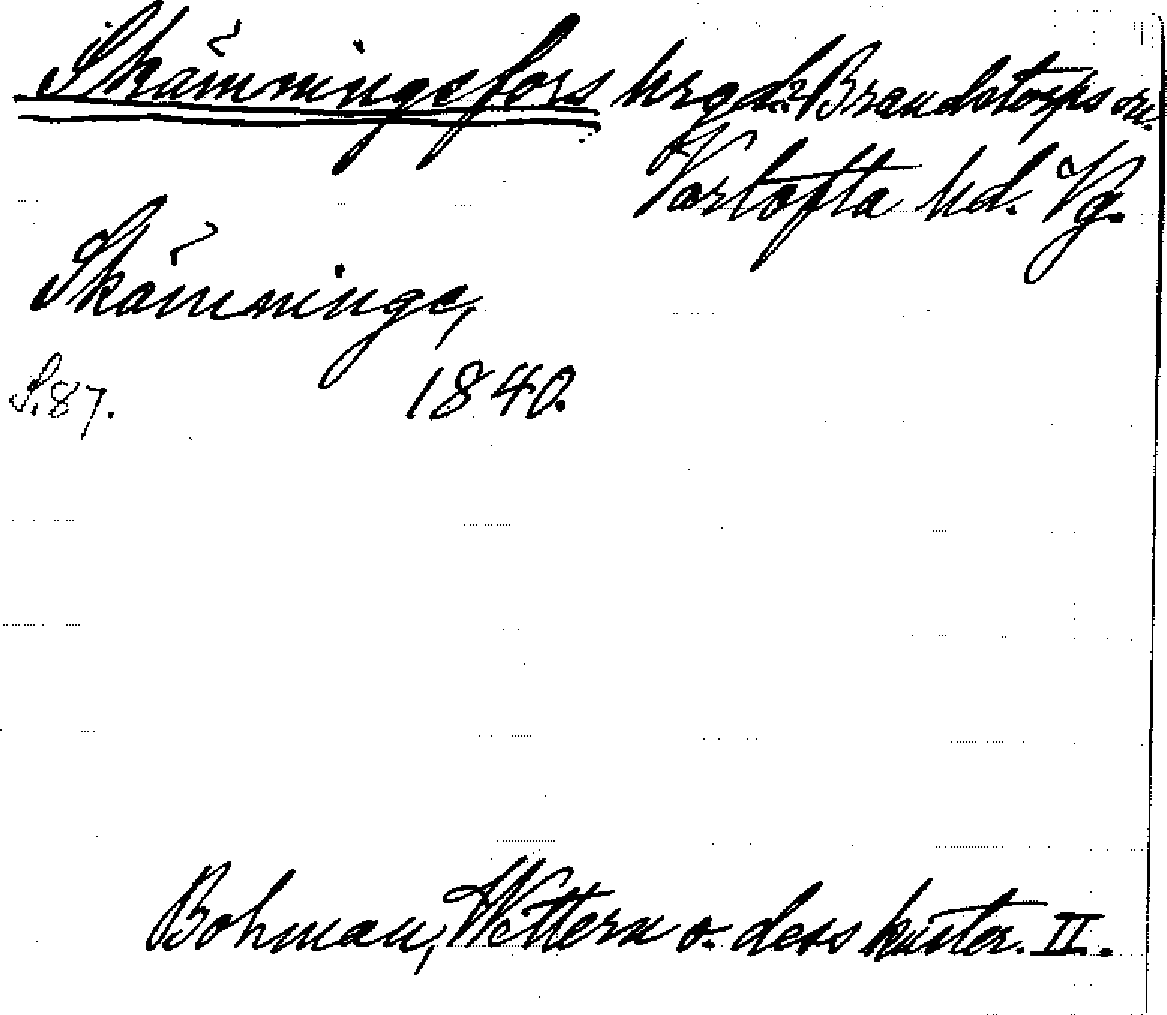 Skämningsfors hrgd. Brandstorps sn.
Vartofta hd. Vg.
Skämninge,
S. 87. 1840.
Bohman, Wettern o. dess kuster. II.